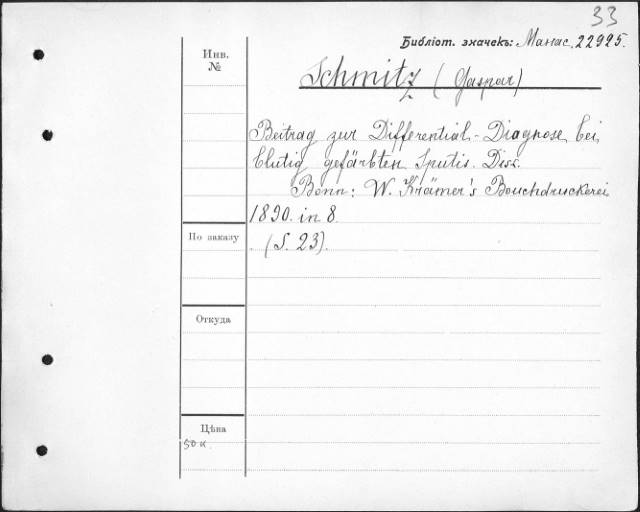 33
Библіот. значекъ: Манас. 22925.
Инв.
№
Schmitz (Gaspar)
Beitrag zur Differential-Diagnose bei
blutig gefärbten Sputis. Diss.
Bonn: W. Krämer's Bouchdruckerei
1890. in 8.
По заказу
(S. 23).
Откуда
Цѣна
50 к.